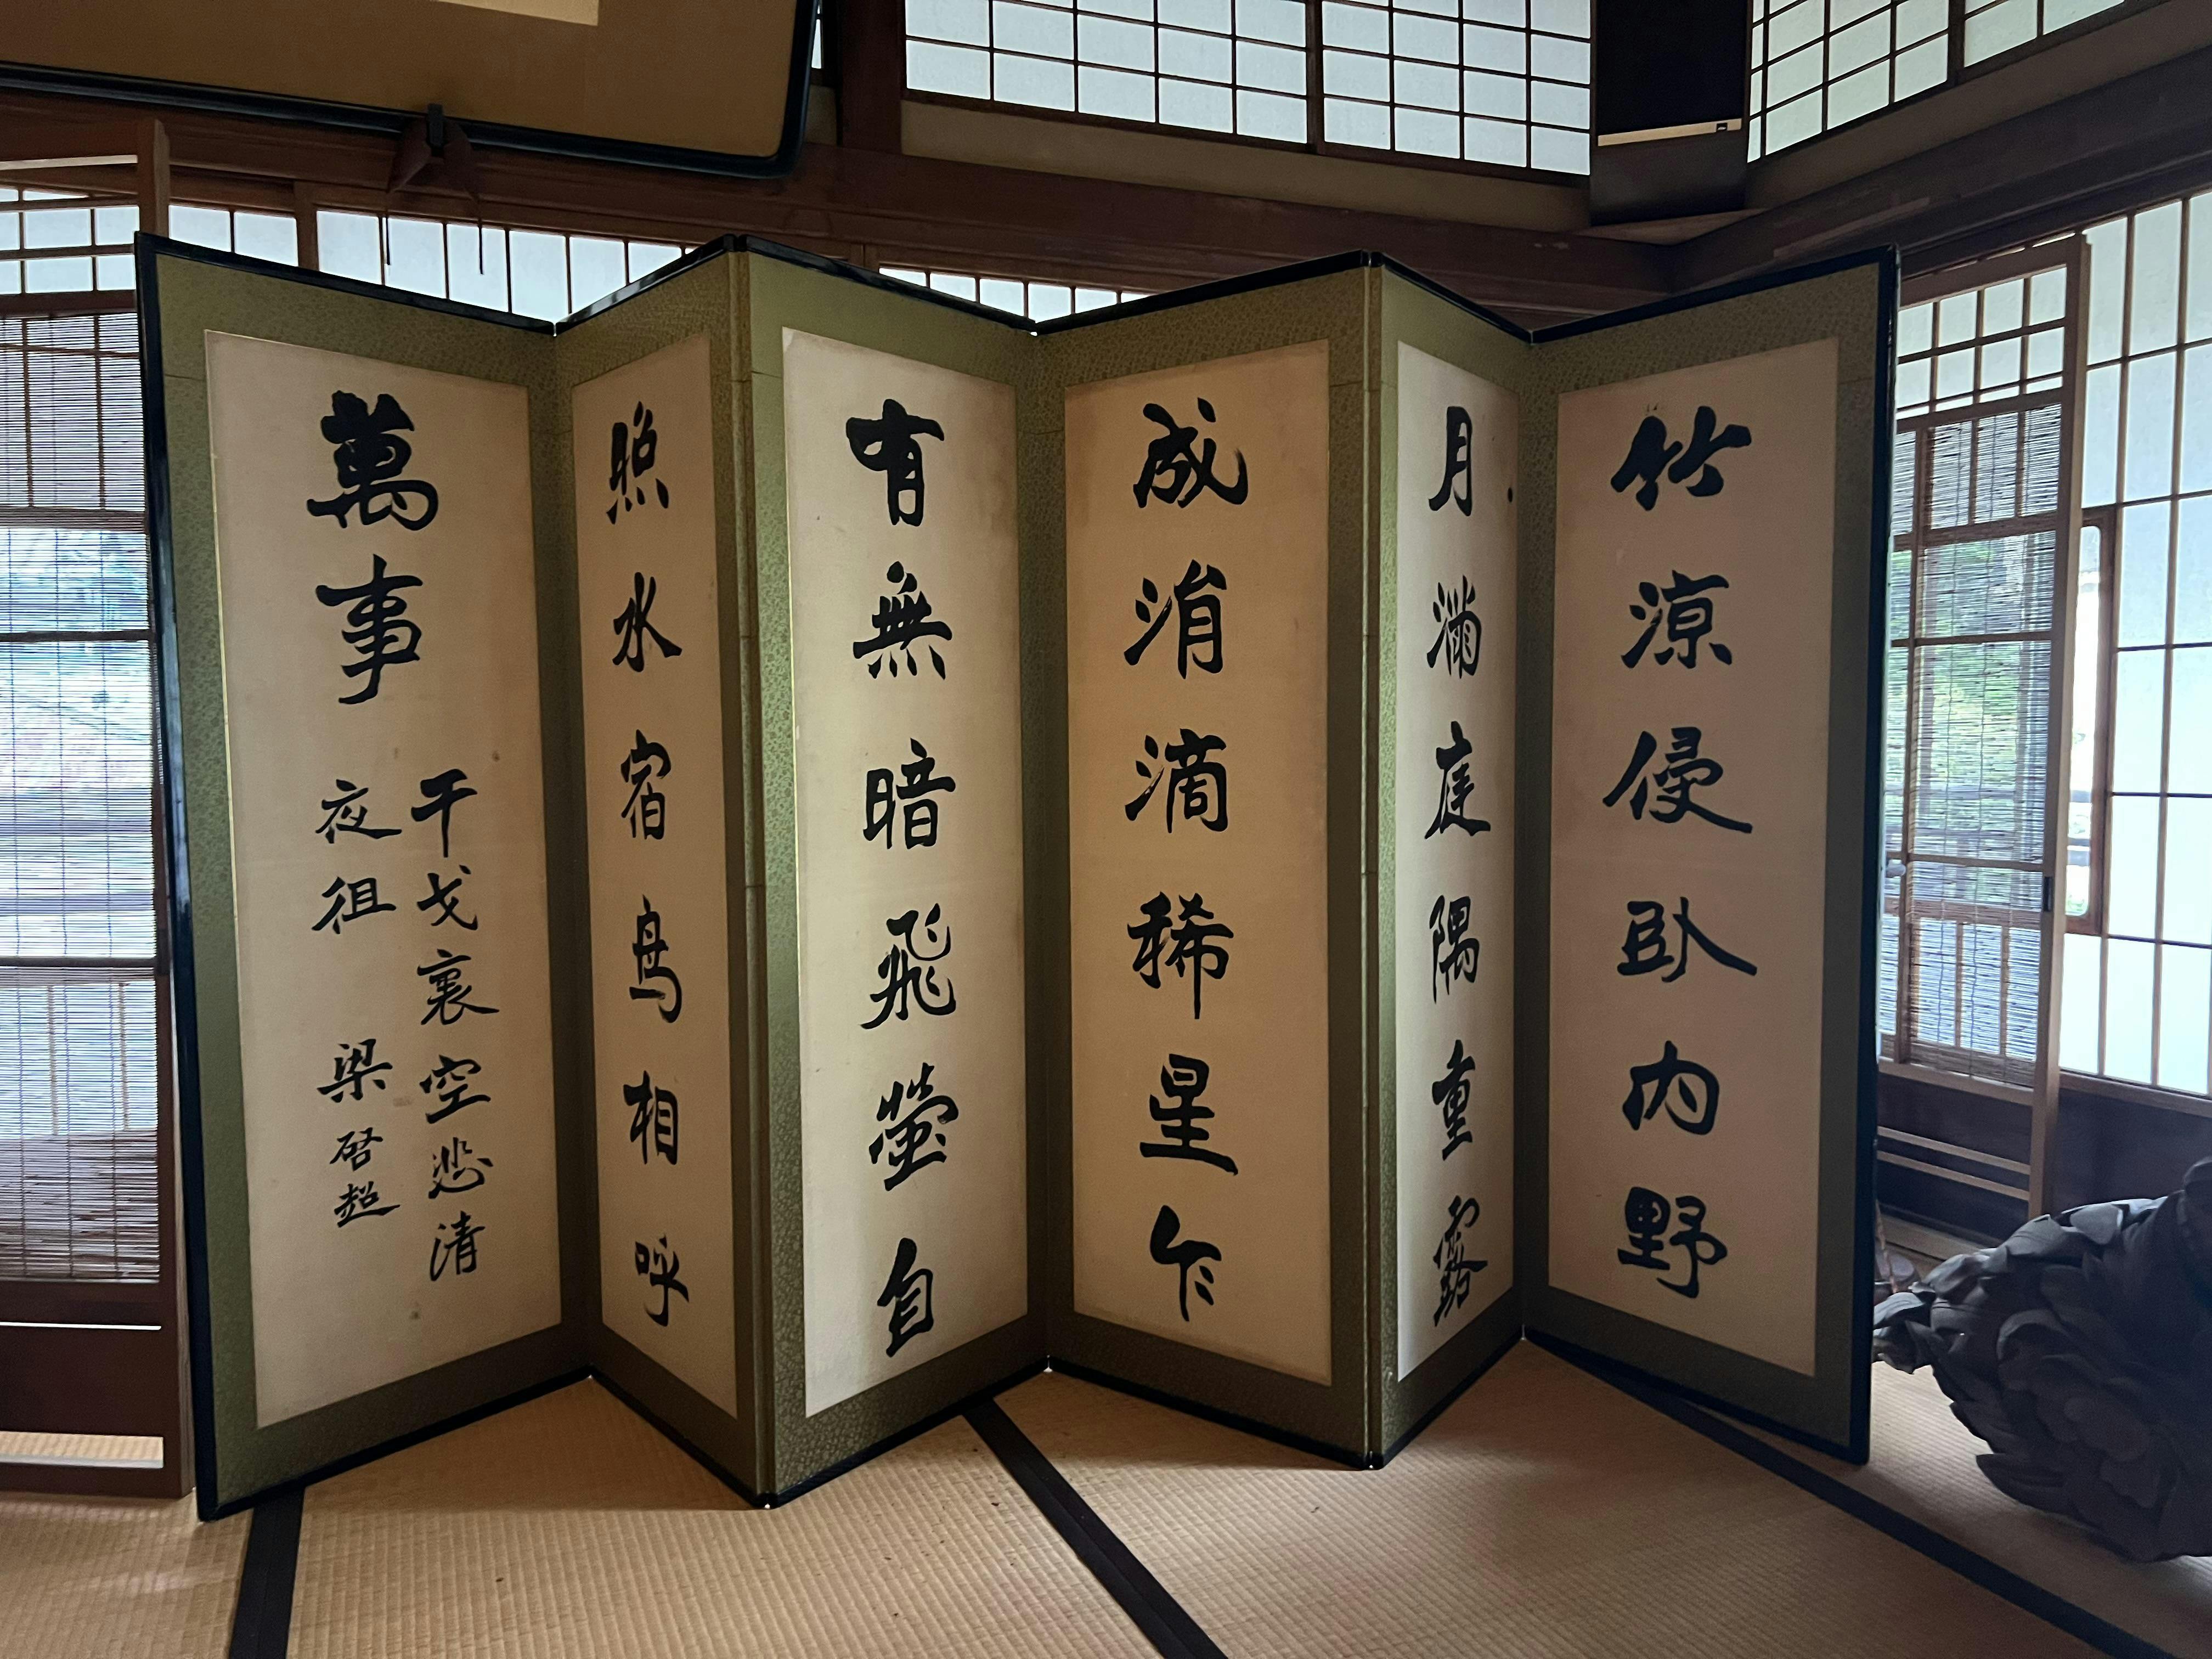 竹涼侵臥内野
月滿庭隅重露
成涓滴稀星乍
有無暗飛螢自
照水宿鳥相呼
萬事
干戈裏空悲清
夜徂
梁啓超